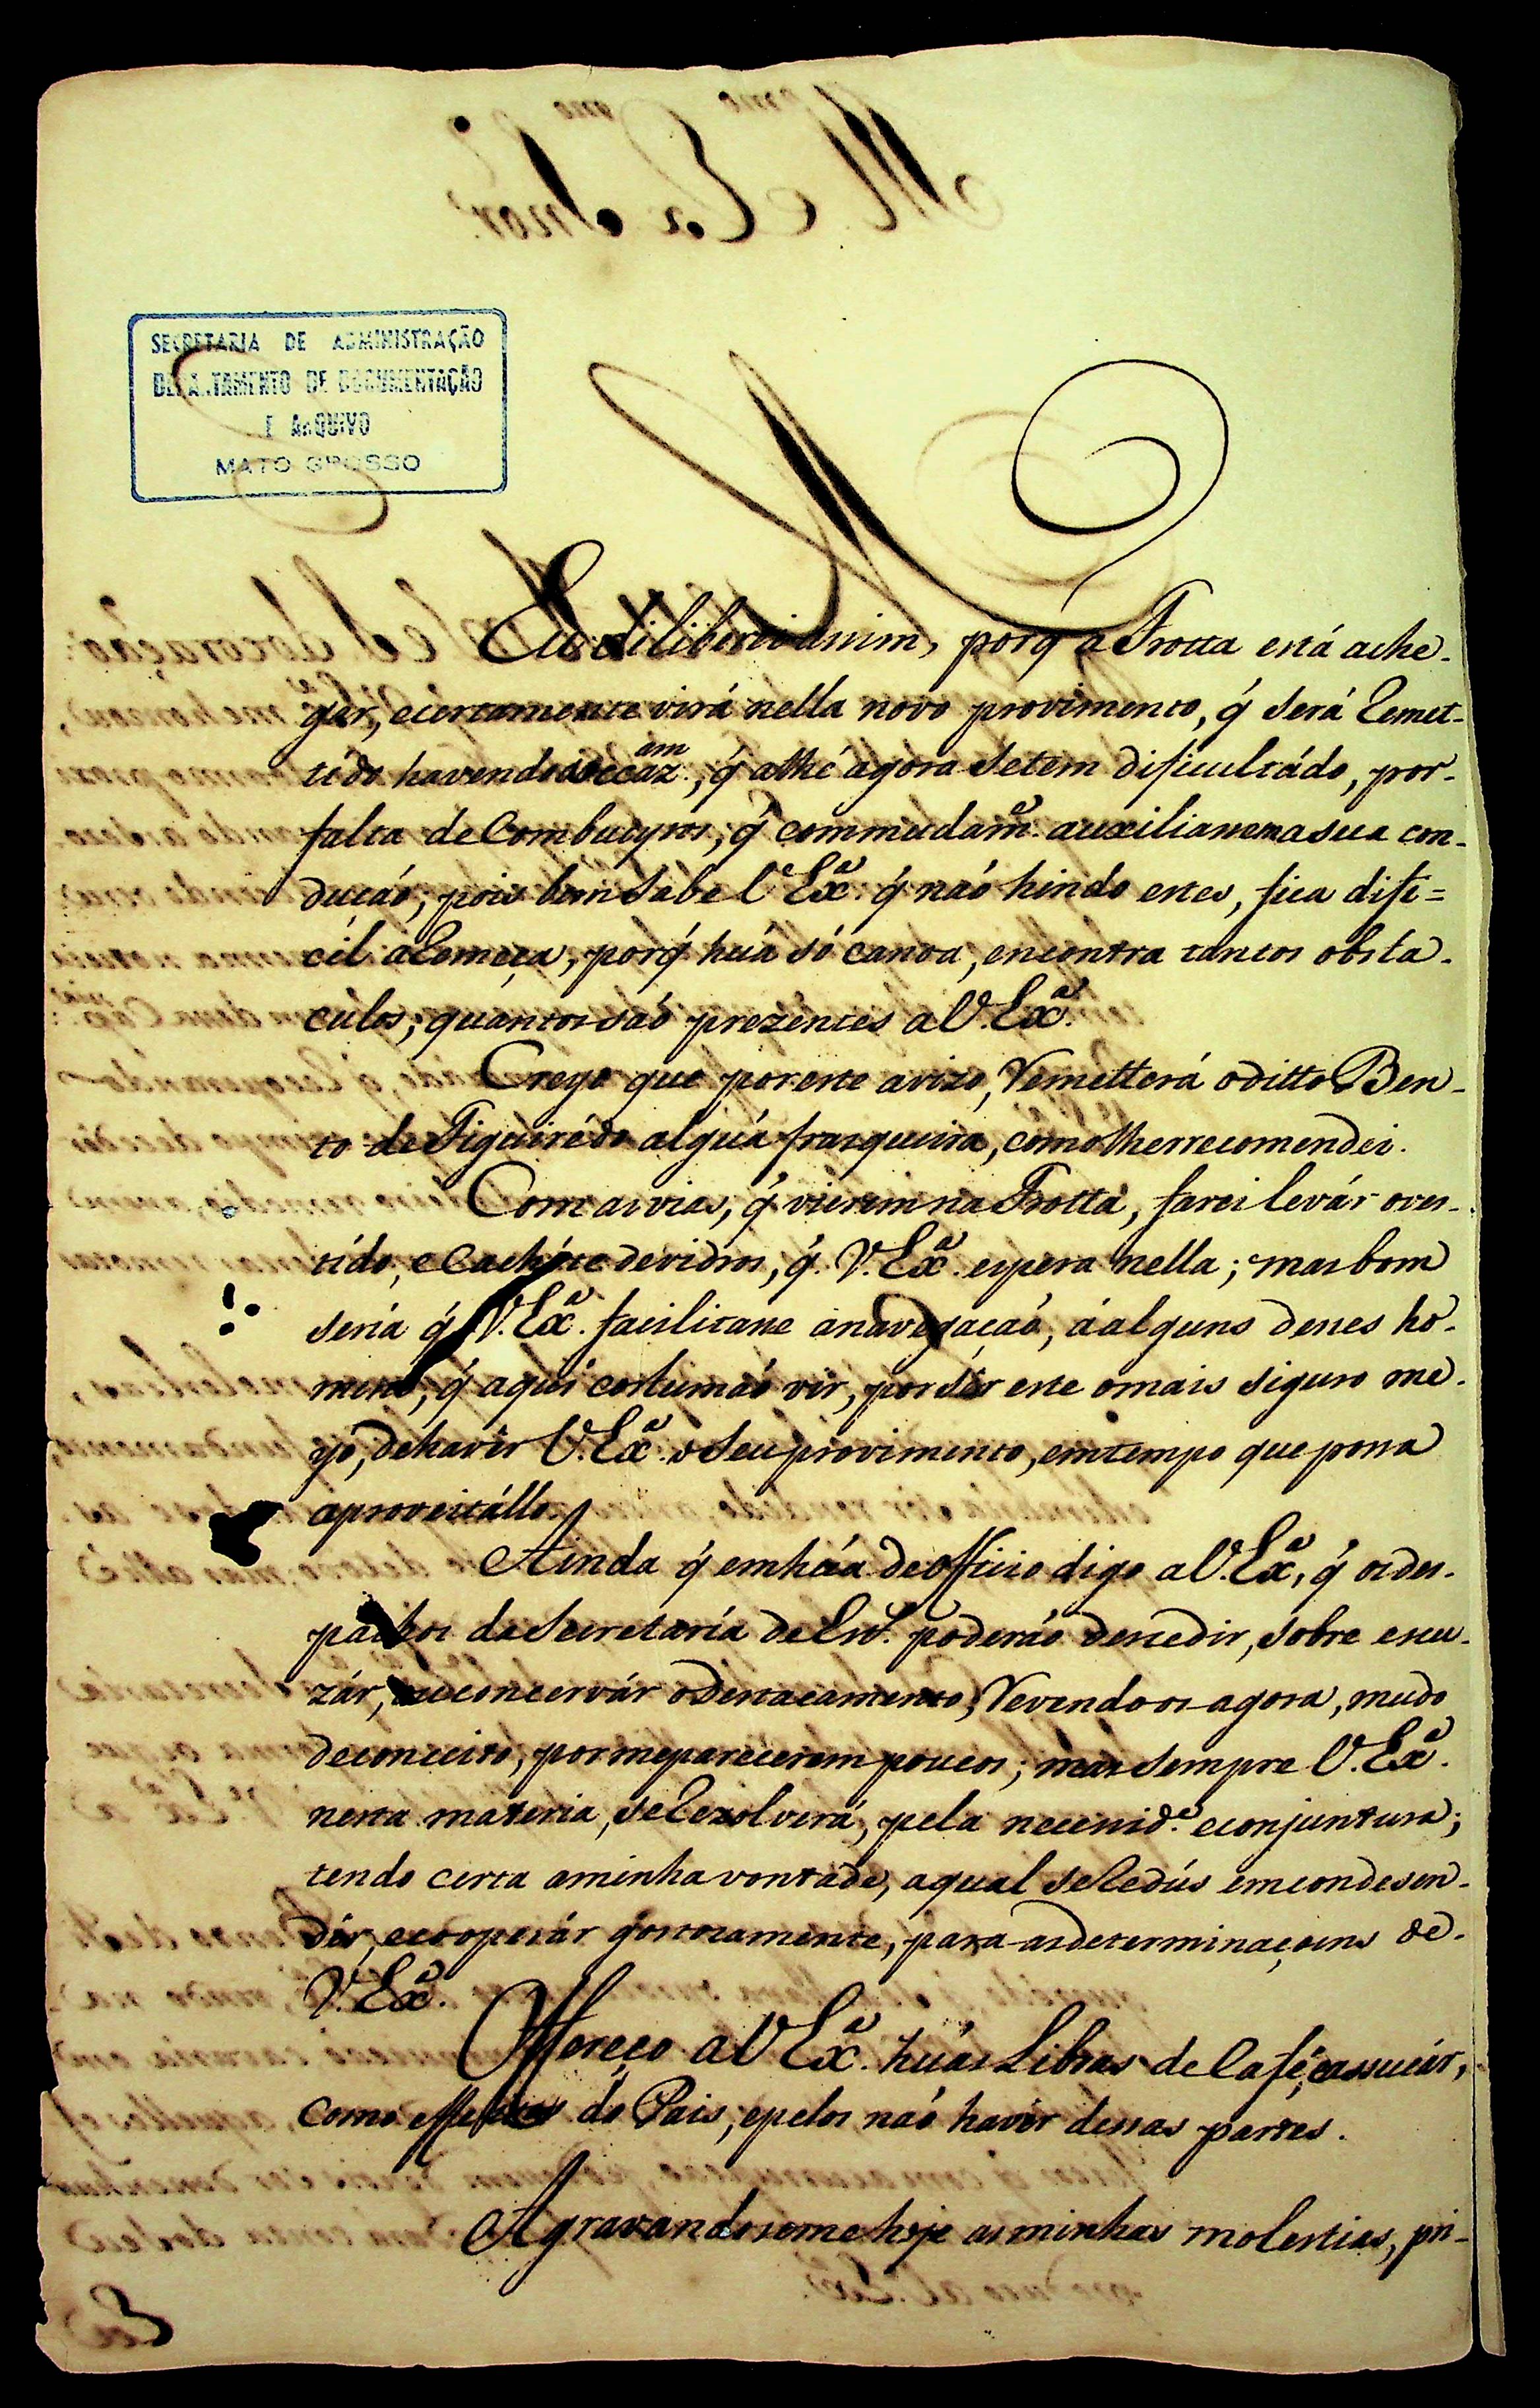 SECRETARIA DE ADMINISTRAÇÃO
DEPARTAMENTO DE DOCUMENTAÇÃO
E ARQUIVO
MATO GROSSO
Eu diliberei assim, porq̃ a Frotta está a che-
gar, e certamente virá nella novo provimento, q̃ será Remet-
tido havendo occazam, q̃ athé agora se tem dificultádo, por
falta de Combueyros, q̃ commudam.e auxiliassem a sua con-
dução; pois bem sabe V Ex.a q̃ naó hindo estes, fica difi=
cil a Remeça, porq̃ húa só canoa, encontra tantos obsta-
culos; quantos saó prezentes a V. Ex.a
Creyo que por este avizo, Remetterá o ditto Ben-
to de Figuirêdo algúa frasqueira, como lhe recomendei.
Com as vias, q̃ vierem na Frotta, farei levár o ves-
tído, e Cachóte de vidros, q̃ V. Ex.a espera nella; mas bom
seria q̃ V. Ex.a facilitasse a navegaçaó, á alguns desses ho-
mens, q̃ aqui costumaó vir, por sêr este o mais siguro me-
yo, de havêr V. Ex.a o seu provimento, em tempo que possa
aproveitállo.
Ainda q̃ em húa de Officio digo a V. Ex.a, q̃ os des-
pachos da Secretaría de Est. poderáo descedir, sobre escu-
zár, ou concervár o Destacamento, Revendo os agora, mudo
de conceito, por me parecerem poucos; mas sempre V. Ex.a
nesta materia, se Rezolverá, pela necessid.e e conjuntura;
tendo certa a minha vontade, a qual se Redús em condesen-
dêr, e cooperár gostozamente, para as determinaçoens de
V. Ex.a
Offereço a V Ex.a húas Libras de Cafê, e assucár,
como effeitos do Pais, e pelos naó havêr dessas partes.
Agravandoseme hoje as minhas molestias, pri-